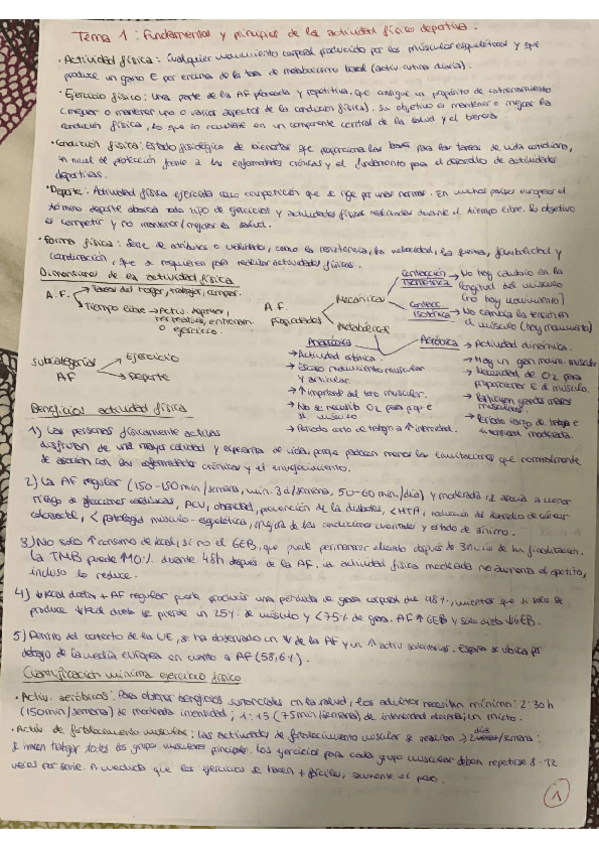 Tema 1: Fundamentos y principios de la actividad física deportiva.
· Actividad física: Cualquier movimiento corporal producido por los músculos esqueléticos y que
produce un gasto E por encima de la tasa de metabolismo basal (activ. rutina diaria).
· Ejercicio físico: Una parte de la AF planeada y repetitiva, que consigue un propósito de entrenamiento
(mejorar o mantener uno o varios aspectos de la condición física). Su objetivo es mantener o mejorar la
condición física, lo que lo convierte en un componente central de la salud y el bienestar.
· Condición física: Estado fisiológico de bienestar que proporciona la base para las tareas de vida cotidiana,
un nivel de protección frente a las enfermedades crónicas y el fundamento para el desarrollo de actividades
deportivas.
· Deporte: Actividad física ejercida como competición que se rige por unas normas. En muchos países europeos el
término deporte abarca todo tipo de ejercicios y actividades físicas realizadas durante el tiempo libre. Su objetivo
es competir y no mantener/mejorar la salud.
· Forma física: Serie de atributos como la resistencia, la velocidad, la fuerza, flexibilidad y
coordinación, que se requieren para realizar actividades físicas.
Dimensiones de la actividad física
A.F. → Tareas del hogar, trabajar, comprar.
→ Tiempo libre → Activ. deportes, recreativas, entrenam. o ejercicio.
subcategorías AF → Ejercicio
→ Deporte
A.F. propiedades → Mecánicas
→ Metabólicas
Contracción isométrica → No hay cambio en la longitud del músculo (no hay movimiento)
Contrac. isotónica → No cambia la tensión en el músculo (hay movimiento)
Anaeróbica
→ Actividad estática.
→ Escaso movimiento muscular y articular.
→ ↑ importante del tono muscular.
→ No se necesita O2 para
→ Periodo corto de trabajo a ↑ intensidad.
Aeróbica → Actividad dinámica.
→ Hay un gran movim. muscular
→ Necesidad de O2 para proporcionar E al músculo.
→ Participan grandes masas musculares.
→ Periodo largo de trabajo a intensidad moderada.
Beneficios actividad física
1) Las personas físicamente activas
disfrutan de una mayor calidad y esperanza de vida, porque padecen menos las limitaciones que normalmente
se asocian con las enfermedades crónicas y el envejecimiento.
2) La AF regular (150-180 min/semana, mín. 3d/semana, 50-60 min./día) y moderada, se asocia a menor
riesgo de afecciones cardíacas, ACV, obesidad, prevención de la diabetes, <HTA, reducción del desarrollo de cáncer
colorrectal, < patología músculo-esquelética, mejora de las condiciones mentales y estado de ánimo.
3) No solo ↑ consumo de kcal, si no el GEB, que puede permanecer elevado después de de la finalización.
La TMB puede ↑10% durante 48h después de la AF. La actividad física moderada no aumenta el apetito,
incluso lo reduce.
4) ↓kcal dieta + AF regular puede producir una pérdida de grasa corporal del 98%, mientras que si solo se
produce ↓kcal dieta se pierde un 25% de músculo y <75% de grasa. AF ↑GEB y solo dieta ↓GEB.
5) Dentro del contexto de la UE, se ha observado un ↓ de la AF y un ↑ activ. sedentarias. España se ubica por
debajo de la media europea en cuanto a AF (58,6%).
Cuantificación mínima ejercicio físico
· Activ. aeróbicas: Para obtener beneficios sustanciales en la salud, los adultos necesitan mínimo: 2:30h
(150min/semana) de moderada intensidad; 1:15 (75min/semana) de intensidad elevada; un mixto.
· Activ. de fortalecimiento muscular: Las actividades de fortalecimiento muscular se realizan ≥2 días/semana:
se hacen trabajar todos los grupos musculares principales. Los ejercicios para cada grupo muscular deben repetirse 8-12
veces por serie. A medida que los ejercicios se hacen + fáciles, aumentar el peso.
1